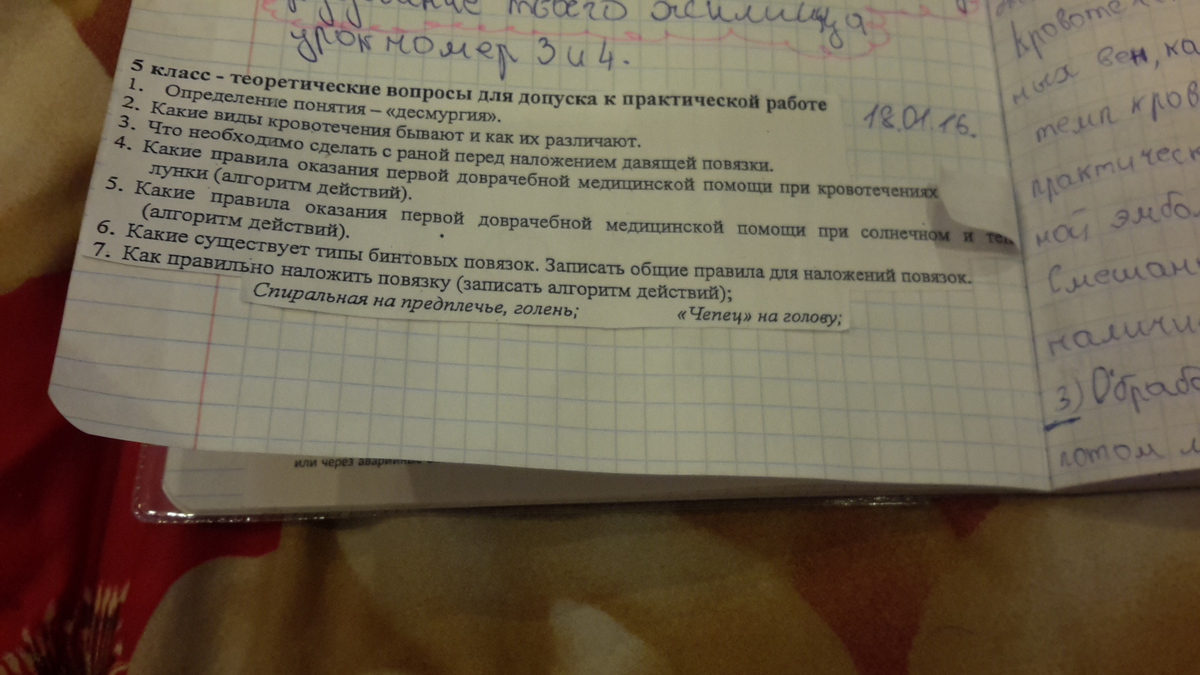 твоего жилища
урок номер 3 и 4.
5 класс - теоретические вопросы для допуска к практической работе
1. Определение понятия – «десмургия».
2. Какие виды кровотечения бывают и как их различают.
3. Что необходимо сделать с раной перед наложением давящей повязки.
4. Какие правила оказания первой доврачебной медицинской помощи при кровотечениях
лунки (алгоритм действий).
5. Какие правила оказания первой доврачебной медицинской помощи при солнечном и
(алгоритм действий).
6. Какие существует типы бинтовых повязок. Записать общие правила для наложений повязок.
7. Как правильно наложить повязку (записать алгоритм действий);
Спиральная на предплечье, голень; «Чепец» на голову;
18.01.16.
ных вен, ка
темп кров
практическ
ной эмбо
Смешан
наличи
3) Обрабо
потом
или через